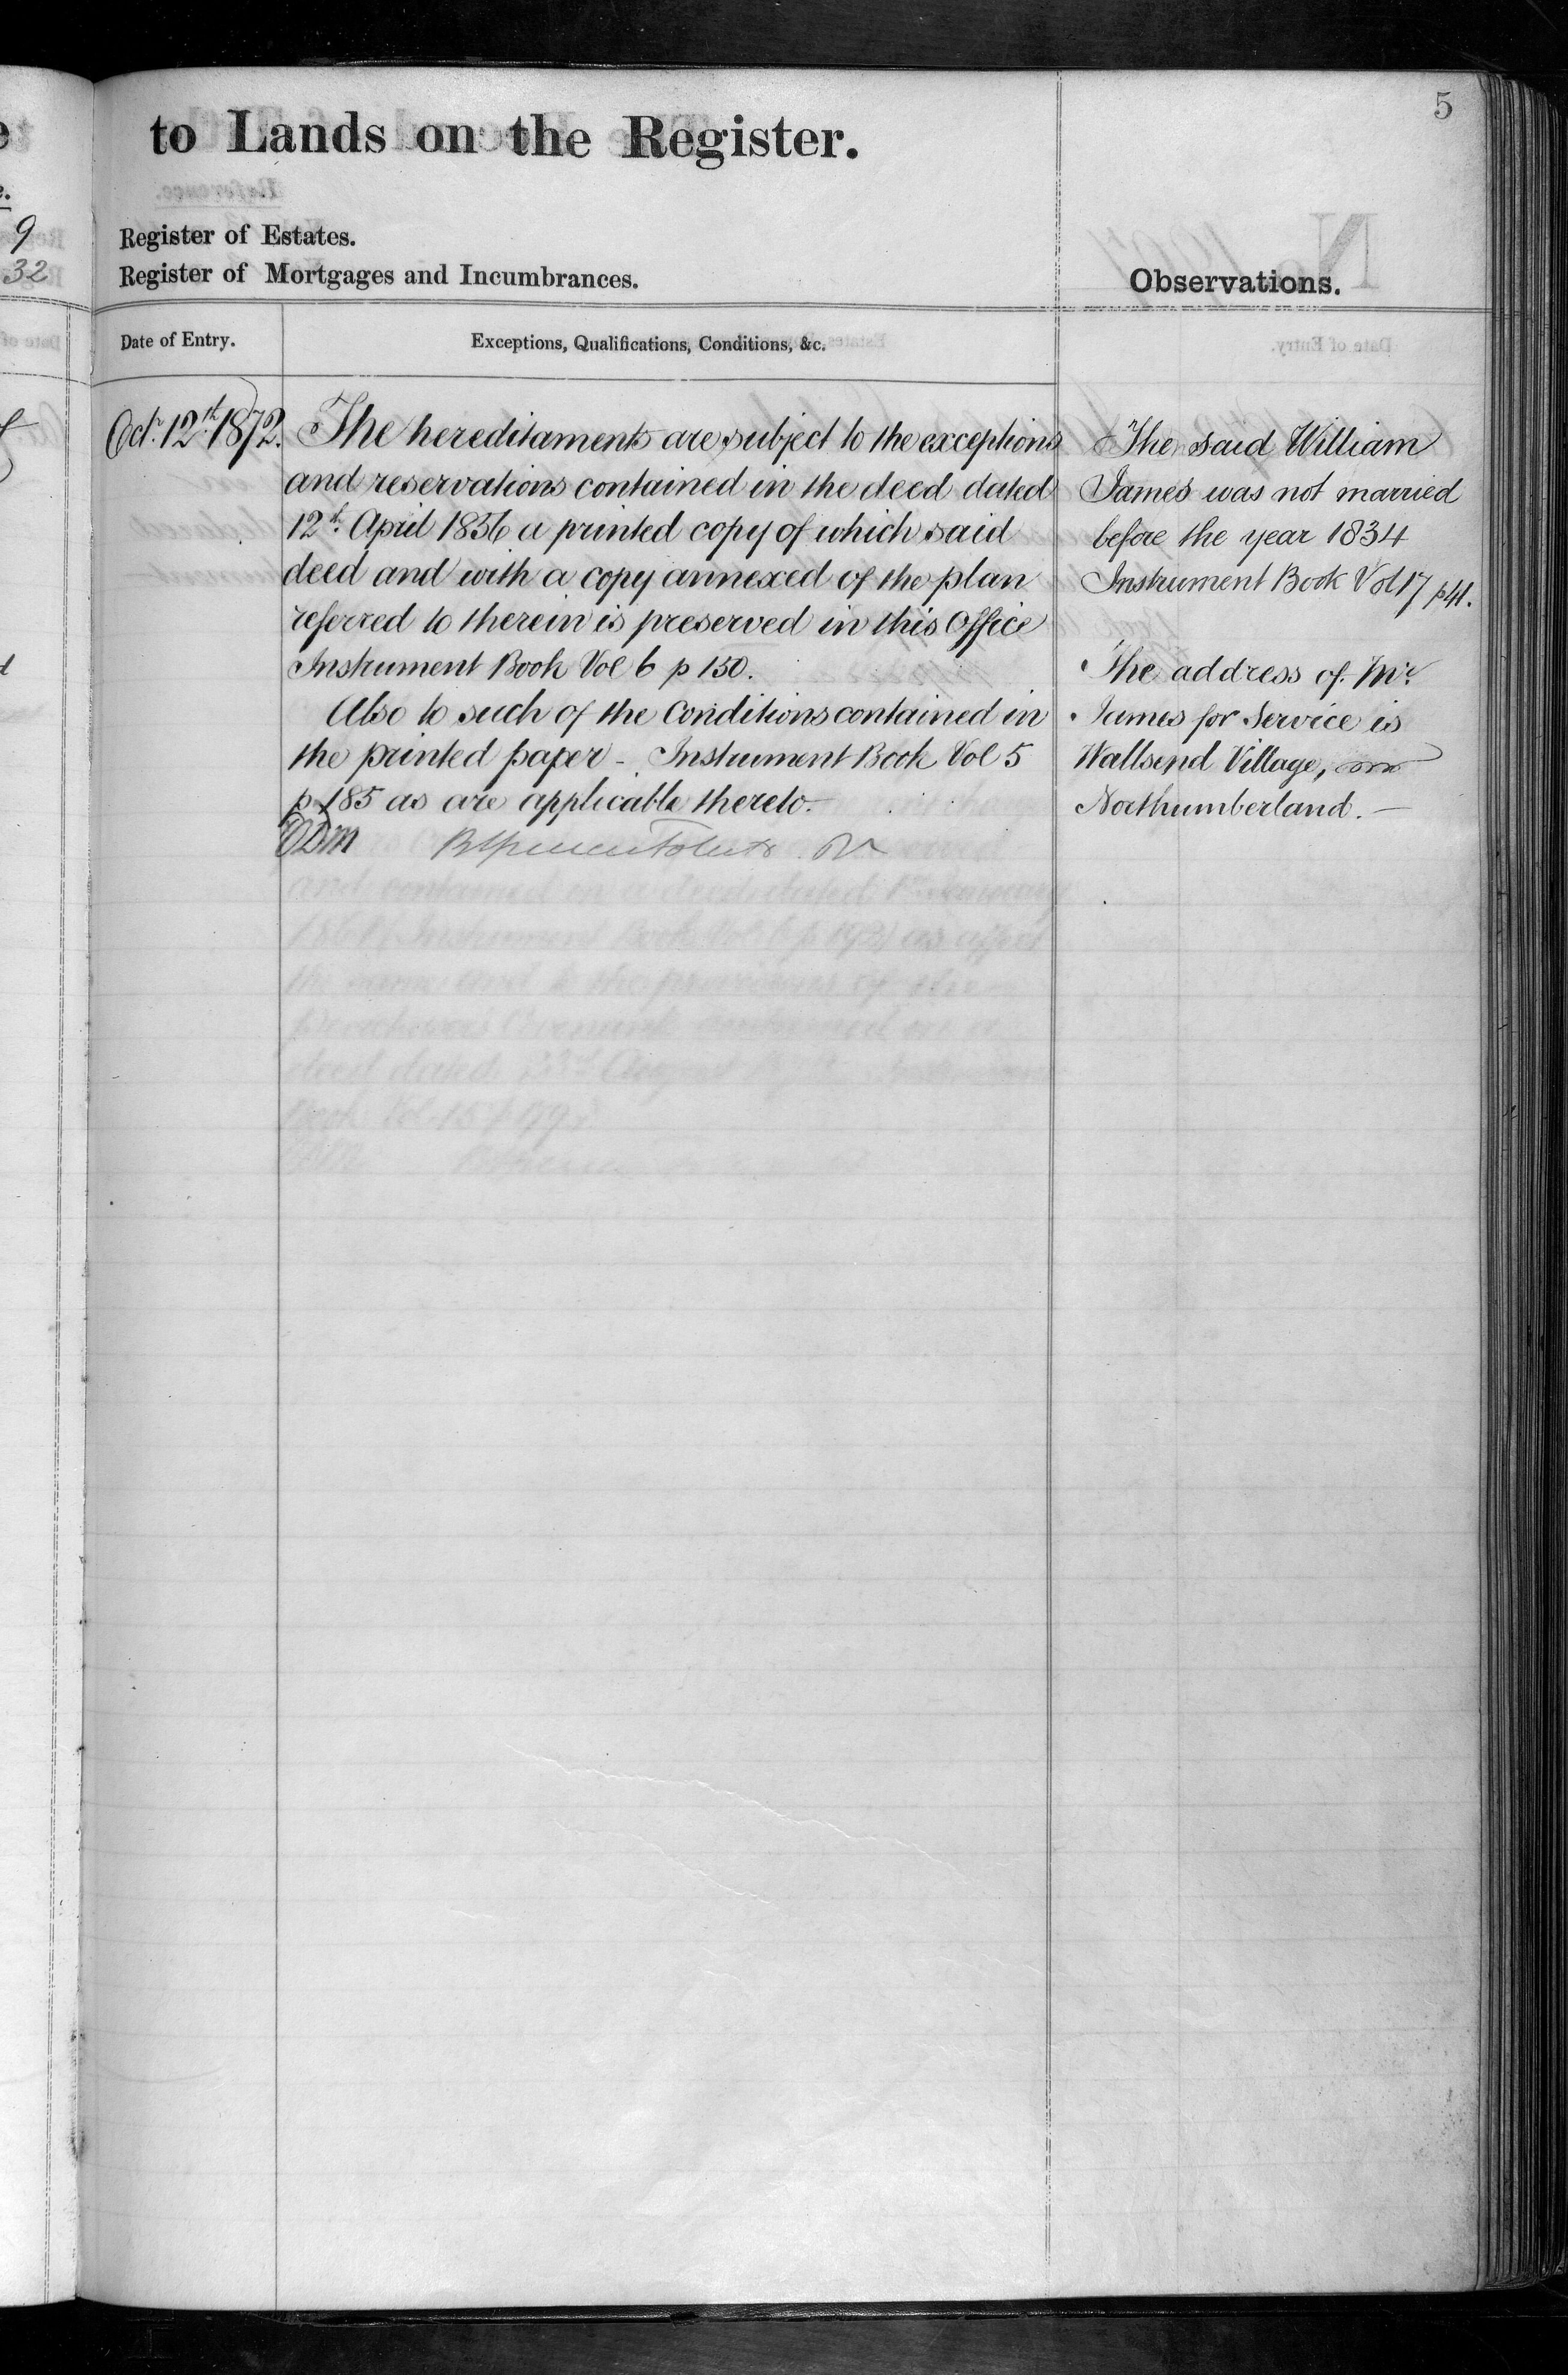 5
to Lands on the Register.
Register of Estates.
Register of Mortgages and Incumbrances.
Observations.
Date of Entry.
Exceptions, Qualifications, Conditions, &c.
Octr. 12th. 1872.
The hereditaments are subject to the exceptions
and reservations contained in the deed dated
12th. April 1856 a printed copy of which said
deed and with a copy annexed of the plan
referred to therein is preserved in this Office
Instrument Book Vol 6 p 130.
Also to such of the Conditions contained in
the printed paper - Instrument Book Vol 5
p 185 as are applicable thereto.
The said William
James was not married
before the year 1834
Instrument Book Vol 17 p 41.
The address of Mr.
James for Service is
Wallsend Village,
Northumberland. —
9
32